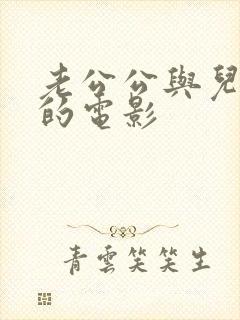 老公公與兒
的電影
青雲笑笑生